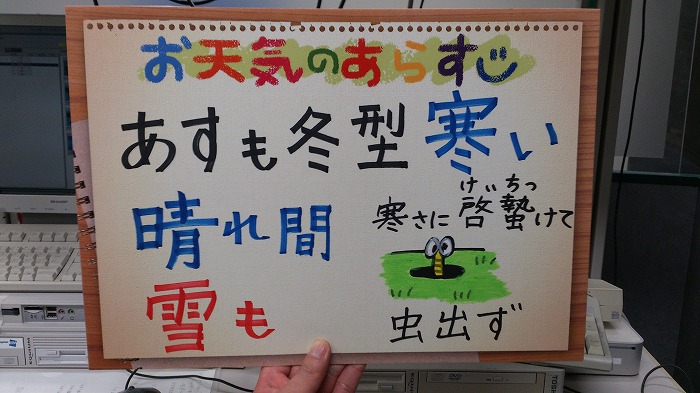 お天気のあらすじ
あすも冬型寒い
晴れ間
雪も
けいちつ
寒さに啓蟄けて
虫出ず